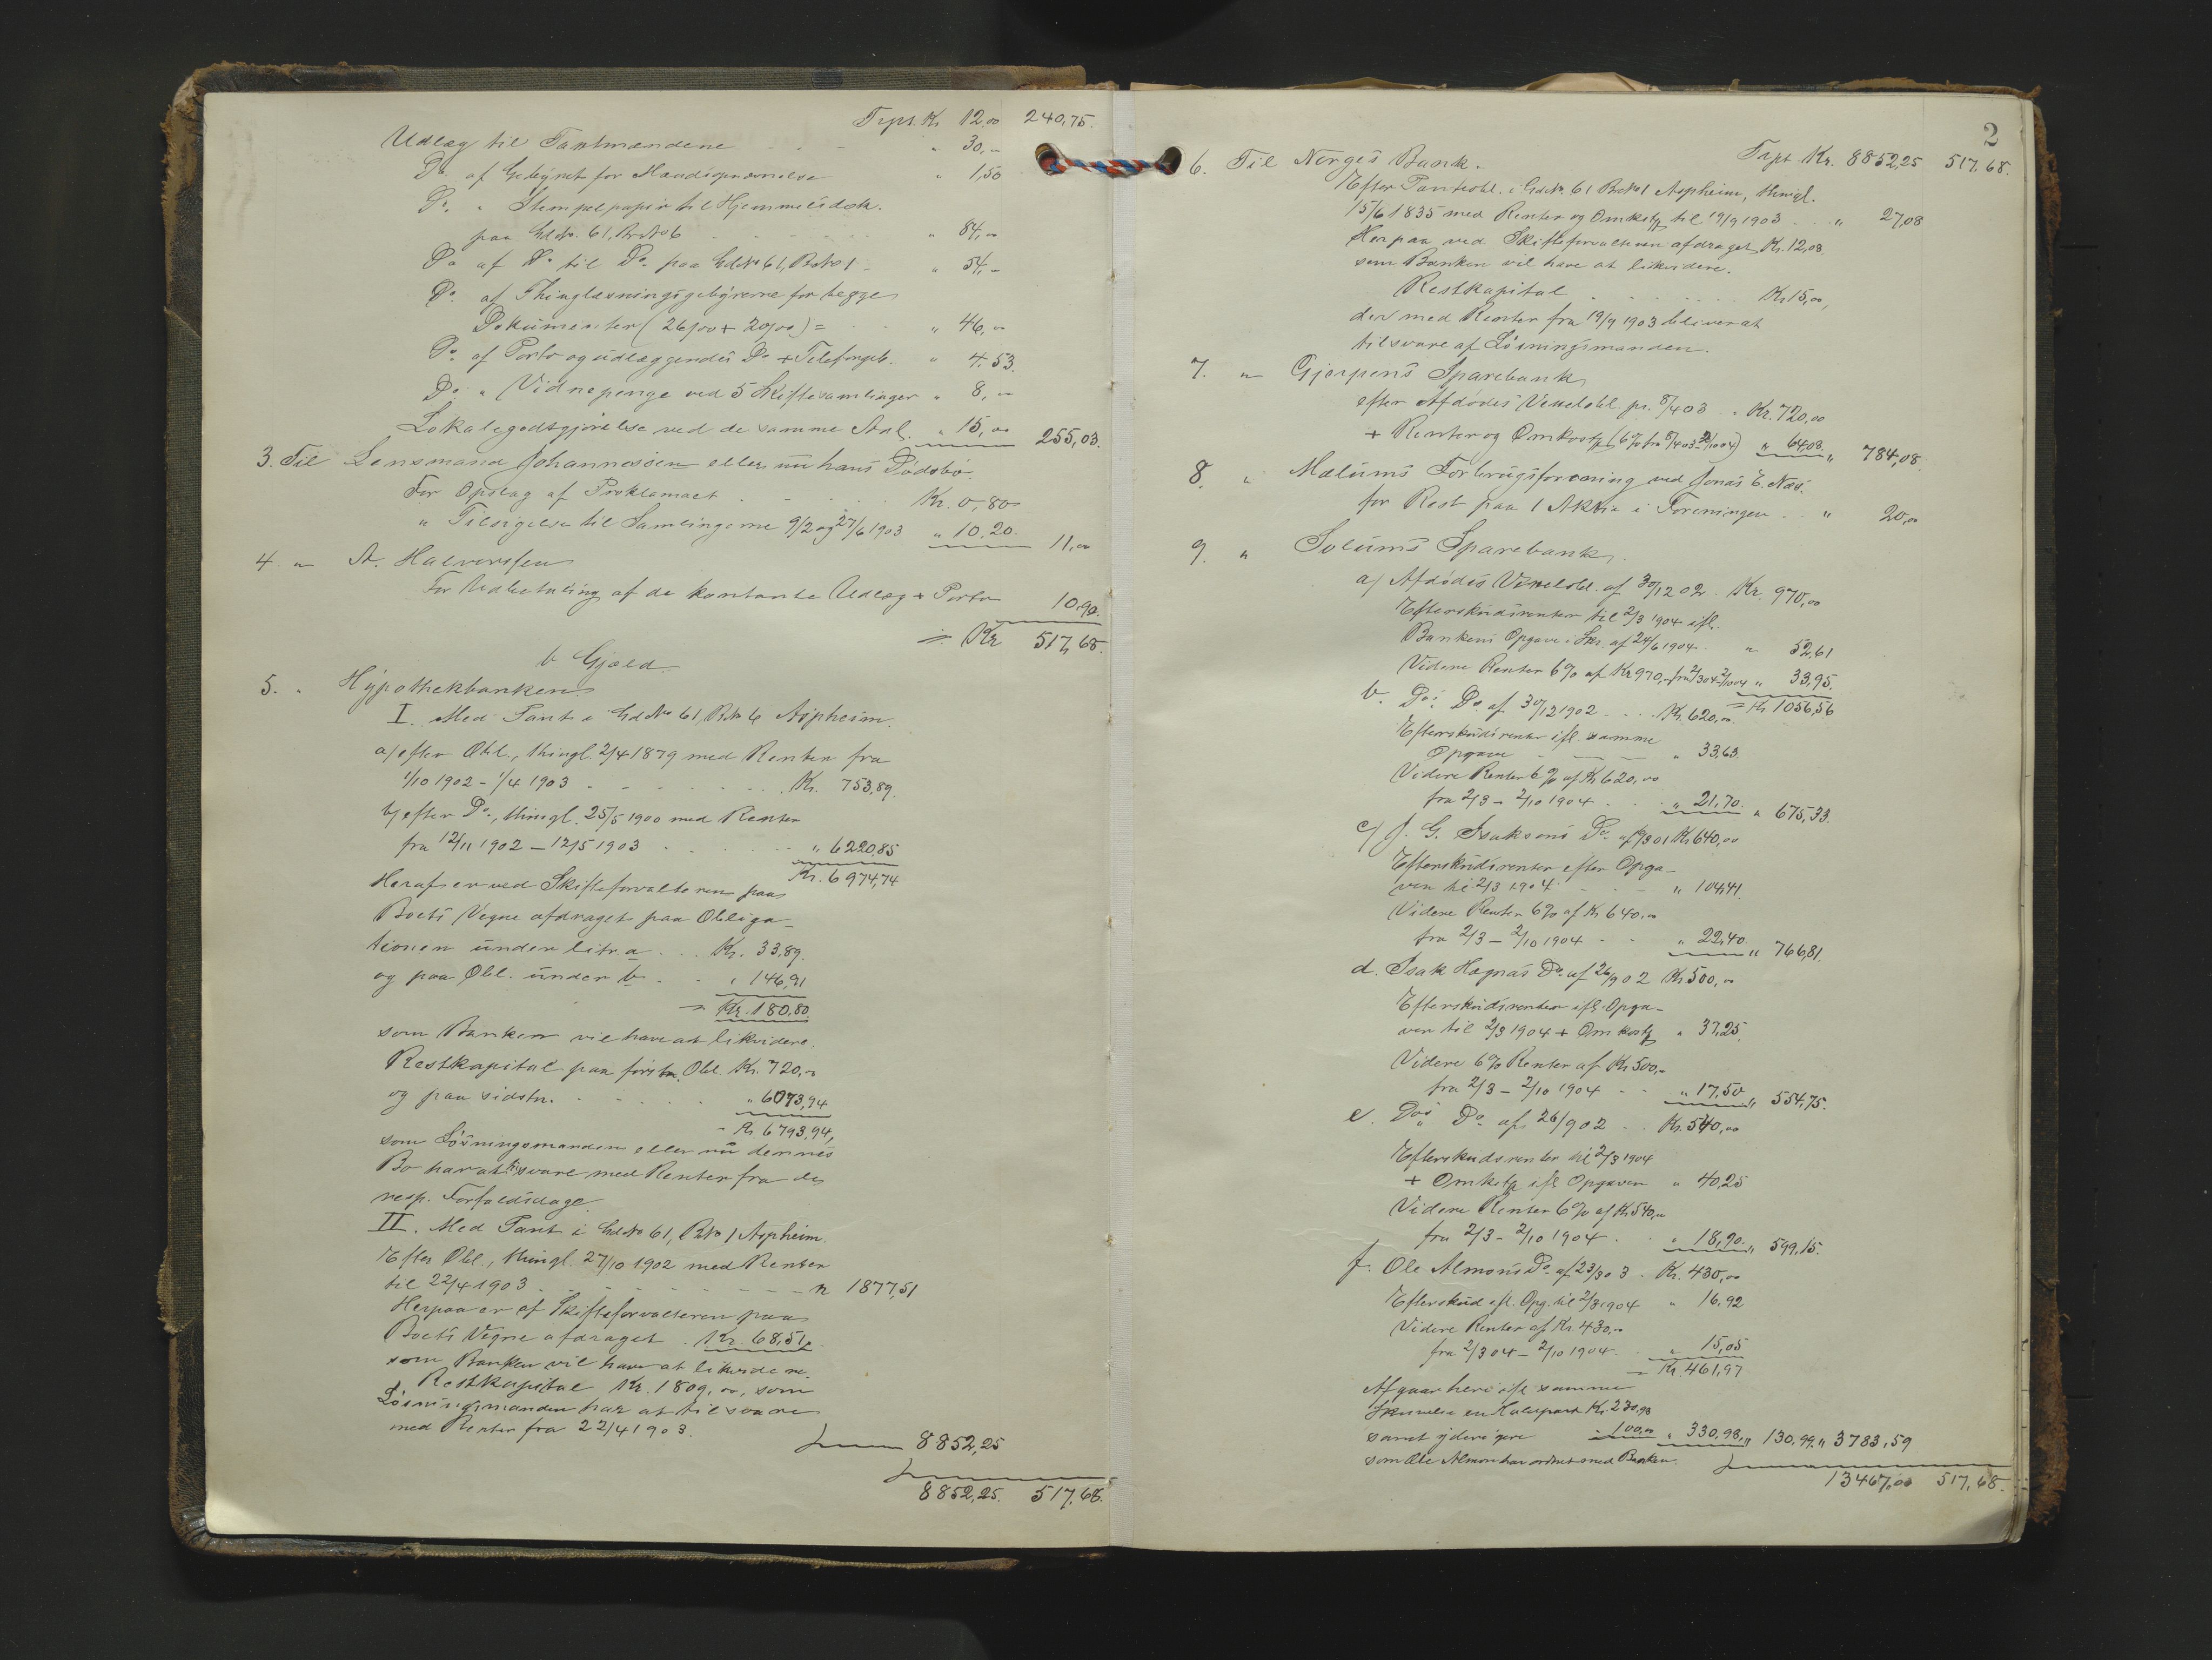 Trpt. Kr. 12,00 240,75.
Udlæg til Taxtmændene " 30,-
Do. af Gebyret for Mændsopnævnelse " 1,50
Do. " Stempelpapir til Hjemmelsdok.
paa Gd.No. 61, Br.No 6 " 84,00
Do af Do til Do paa Gd.No 61, B.No 1 - " 54,-
Do. af Thinglæsningsgebyrerne for begge
Dokumenter (26,00 + 20,00) = " 46,00
Do. af Porto og udlæggendes Do + Telefongeb. " 4,53.
Do. " Vidnepenge ved 5 Skiftesamlinger " 8,-
Lokalegodtgjørelse ved de samme Aal. " 15,00 255,03.
3. Til Lensmand Johannessen eller nu hans Dødsbo
For Opslag af Proklamaet Kr. 0,80
" Tilsigelse til Samlingerne 9/2 og 27/6 1903 " 10,20. 11,00
4. " A. Halvorsen
For Udbetaling af de kontante Udlæg + Porto 10,90.
= Kr 517,68.
b Gjæld.
5. " Hypothekbanken
I. Med Pant i Gd.No 61, B.No 6 Aspheim.
a/ efter Obl., thingl. 2/4 1879 med Renter fra
1/10 1902 - 1/4 1903 Kr. 753,89.
b/ efter Do., thingl. 25/5 1900 med Renter
fra 12/11 1902 - 12/5 1903 " 6220,85
Kr. 6974,74
Heraf er ved Skifteforvalteren paa
Boets Vegne afdraget paa Obliga-
tionen under litr. a Kr. 33,89.
og paa Obl. under b " 146,91
= Kr. 180,80.
som Banken vil have at likvidere.
Restkapital paa første Obl. Kr. 720,-
og paa sidstn. " 6073,94
= Kr 6793,94,
som Løsningsmanden eller nu dennes
Bo har at tilsvare med Renter fra de
resp. Forfaldsdage.
II. Med Pant i Gd.No 61, B.No 1 Aspheim.
Efter Obl., thingl. 27/10 1902 med Renter
til 22/4 1903 " 1877,51
Herpaa er af Skifteforvalteren paa
Boets Vegne afdraget Kr. 68,51,
som Banken vil have at likvidere.
Restkapital Kr. 1809,00, som
Løsningsmanden har at tilsvare
med Renter fra 22/4 1903.
8852,25
8852,25. 517,68.
2
Trpt. Kr. 8852,25 517,68.
6. Til Norges Bank.
Efter Pantobl. i Gd.No. 61 B.No 1 Aspheim, thingl.
15/6 1835 med Renter og Omkstg til 19/9 1903 " 27,08
Herpaa ved Skifteforvalteren afdraget Kr. 12,08.
som Banken vil have at likvidere.
Restkapital Kr 15,00,
der med Renter fra 19/9 1903 bliver at
tilsvare af Løsningsmanden.
7. " Gjerpens Sparebank
efter Afdødes Vexelobl. pr. 8/4 03 Kr. 720,00
+ Renter og Omkostg (6% fra 8/4 03 - 2/10 04) " 64,08. " 784,08.
8. " Mælums Forbrugsforening ved Jonas E. Næs.
for Rest paa 1 Aktie i Foreningen " 20,00
9. " Solums Sparebank.
a/ Afdødes Vexelobl. af 30/12 02. Kr. 970,00
Efterskudsrenter til 2/3 1904 ifl.
Bankens Opgave i Skr. af 24/6 1904 " 52,61
Videre Renter 6% af Kr 970,- fra 2/3 04 - 2/10 04 " 33,95.
= Kr 1056,56
b. Do.s Do. af 30/12 1902 Kr. 620,00
Efterskudsrenter ifl. samme
Opgave " 33,63.
Videre Renter 6% af Kr 620,00
fra 2/3 - 2/10 1904 " 21,70. " 675,33.
c/ J. G. Isaksens Do. af 01 Kr 640,00
Efterskudsrenter efter Opga-
ven til 2/3 1904 " 104,41.
Videre Renter 6% af Kr 640,00
fra 2/3 - 2/10 1904 " 22,40 " 766,81.
d. Isak Hægnas Do. af 26/9 02 Kr 500,00
Efterskudsrenter ifl. Opga-
ven til 2/3 1904 + Omkostg " 37,25.
Videre 6% Renter af Kr 500,-
fra 2/3 - 2/10 1904 " 17,50 " 554,75.
e. Do.s Do. af 26/9 02 Kr. 540,00
Efterskudsrenter til 2/3 1904
+ Omkstg ifl. Opgaven " 40,25
Videre Renter 6% af Kr 540,00
fra 2/3 - 2/10 1904 " 18,90. " 599,15.
f. Ole Almons Do. af 23/3 03 Kr. 430,00
Efterskud ifl. Opg. til 2/3 1904 " 16,92
Videre Renter af Kr. 430,00
fra 2/3 04 - 2/10 1904 " 15,05
= Kr. 461,97
Afgaar heri ifl. samme
Skrivelse en Halvpart Kr. 230,98
samt yderligere " 100,00 " 330,98, " 130,99. " 3783,59
som Ole Almon har ordnet med Banken.
13467,00 517,68.